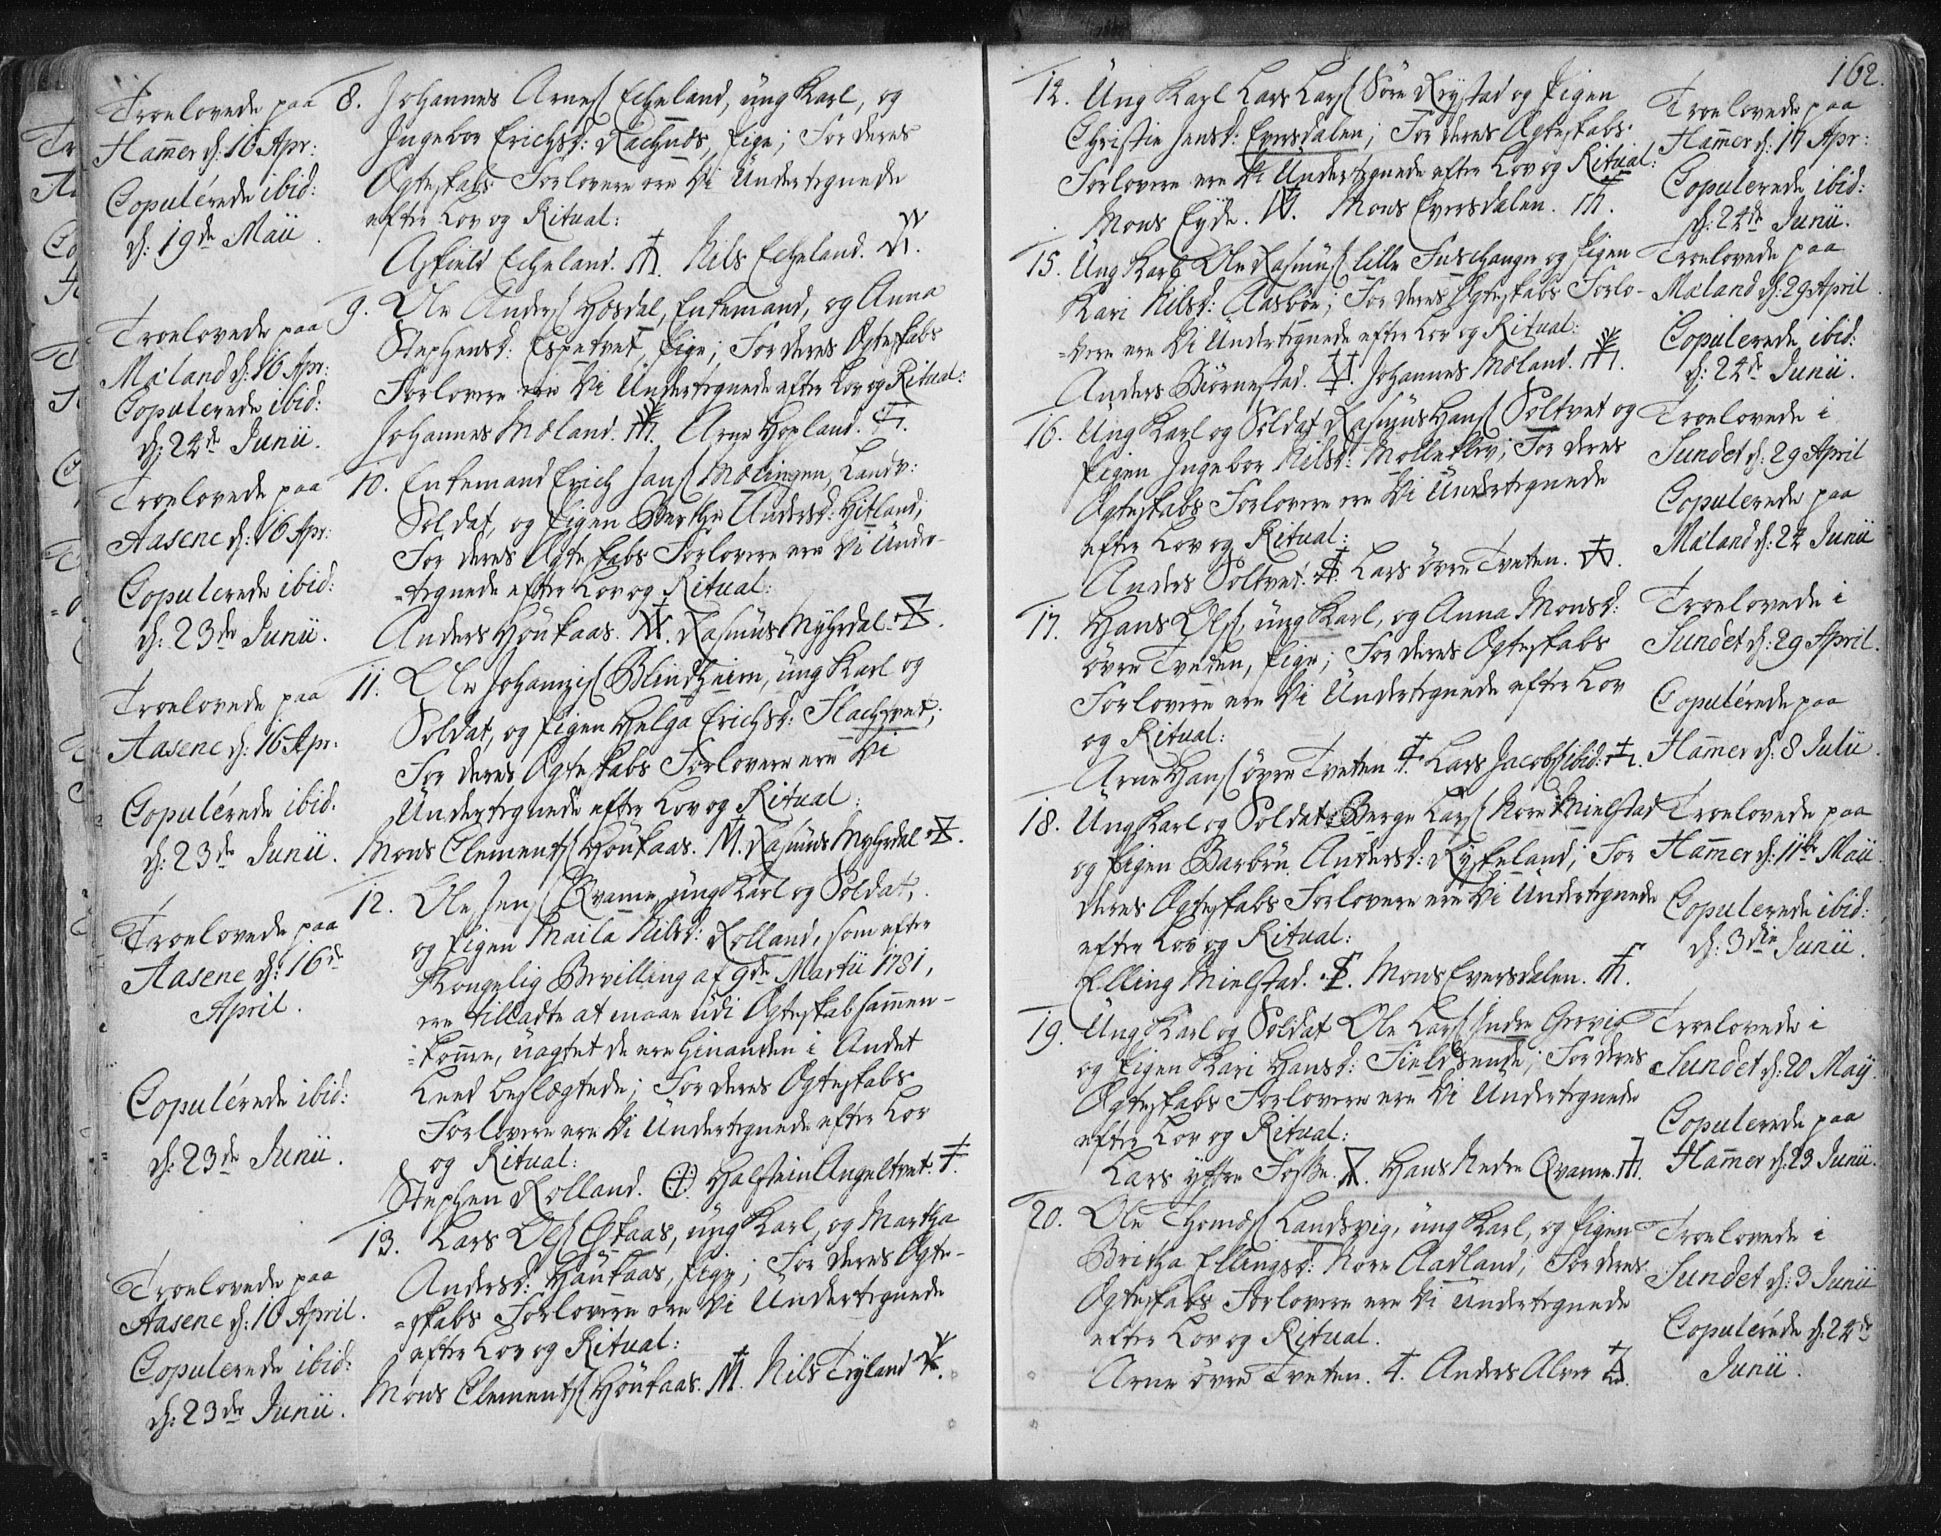 Troelovede paa
Hamer d: 16 Apr:
Copulérede ibid:
d: 19de Maii.
8. Johannes Arnes Echeland, ung Karl, og
Ingebor Erichsd: Pige; For deres
Ægteskabs Forlovere ere Vi Undertegnede
efter Lov og Ritual:
Echeland. Nils Echeland.
Troelovede paa
Mæland d: 16 Apr:
Copulerede ibid:
d: 24de Junii.
9. Ole Anders Hosdal, Enkemand, og Anna
Stephensd: Espetvet, Pige; For deres Ægteskabs
Forlovere ere Vi Undertegnede efter Lov og Ritual:
Johannes Mæland. Arne Hopland.
Troelovede paa
Aasene d: 16 Apr:
Copulerede ibid:
d: 23de Junii.
10. Enkemand Erich Jans Mælingen, Landv:
Soldat, og Pigen Berthe Andersd: Hitland;
For deres Ægteskabs Forlovere ere Vi Under-
=tegnede efter Lov og Ritual:
Anders Houkaas. Rasmus Myhrdal.
Troelovede paa
Aasene d: 16 Apr:
Copulérede ibid.
d: 23de Junii.
11. Ole Blindheim, ung Karl og
Soldat, og Pigen Helga Erichsd: Flachtvet;
For deres Ægteskabs Forlovere ere Vi
Undertegnede efter Lov og Ritual:
Mons Clements Houkaas. Rasmus Myhrdal.
Troelovede paa
Aasene d: 16de
April.
Copulérede ibid:
d: 23de Junii.
12. Ole Jens Qvamme, ung Karl og Soldat,
og Pigen Maila Nilsd: Rolland, som efter
Kongelig Bevilling af 9de Martii 1781,
ere tilladte at maae udi Ægteskab sammen-
=komme, uagtet de ere hinanden i Andet
Leed beslægtede; For deres Ægteskabs
Forlovere ere Vi Undertegnede efter Lov
og Ritual:
Stephen Rolland. Halstein Angeltvet.
Troelovede paa
Aasene d: 16 April.
Copulerede ibid:
d: 23de Junii.
13. Lars Ols Askaas, ung Karl, og Martha
Andersd: Haukaas, Pige; For deres Ægte-
=skabs Forlovere ere Vi Undertegnede
efter Lov og Ritual:
Mons Clements Houkaas. Nils Tryland
162.
14. Ung Karl Lars Lars Søre Røystad og Pigen
Christie Jensd: Eversdalen; For deres Ægteskabs
Forlovere ere Vi Undertegnede efter Lov og Ritual:
Mons Eyde. Mons Eversdalen.
Troelovede paa
Hamer d: 17 Apr:
Copulerede ibid:
d: 24de Junii.
15. Ung Karl Ole Rasmus lille Fuschanger og Pigen
Kari Nilsd: Aasbøe; For deres Ægteskabs Forlo-
=vere ere Vi Undertegnede efter Lov og Ritual:
Anders Biørnestad. Johannes Mæland.
Troelovede paa
Mæland d: 29 April
Copulerede ibid:
d: 24de Junii.
16. Ung Karl og Soldat Rasmus Hans Soltvet og
Pigen Ingebor Nilsd: Mollekleiv; For deres
Ægteskabs Forlovere ere Vi Undertegnede
efter Lov og Ritual:
Anders Soltvet. Lars øvre Tveten.
Troelovede i
Sundet d: 29 April
Copulerede paa
Mæland d: 24 Junii
17. Hans Ols, ung Karl, og Anna Monsd:
øvre Tveten, Pige; For deres Ægteskabs
Forlovere ere Vi Undertegnede efter Lov
og Ritual:
Arne Hans øvre Tveten. Lars Jacobs ibid:
Troelovede i
Sundet d: 29 April.
Copulérede paa
Hamer d: 8 Julii.
18. Ung Karl og Soldat Berge Lars Nore Mielstad
og Pigen Barbru Andersd: Røskeland; For
deres Ægteskabs Forlovere ere Vi Undertegnede
efter Lov og Ritual:
Elling Mielstad. Mons Eversdalen.
Troelovede paa
Hamer d: 11te Maii.
Copulerede ibid:
d: 3die Junii.
19. Ung Karl og Soldat Ole Lars Indre Giervig
og Pigen Kari Hansd: Fieldsende; For deres
Ægteskabs Forlovere ere Vi Undertegnede
efter Lov og Ritual:
Lars yttre Fosse. Hans Nedre Qvamme.
Troelovede i
Sundet d: 20 May.
Copulerede paa
Hamer d: 23 Junii.
20. Ole Thomæs Landsvig, ung Karl, og Pigen
Britha Ellingsd: Nore Aadland; For deres
Ægteskabs Forlovere ere Vi Undertegnede
efter Lov og Ritual.
Arne øvre Tveten. Anders Alver
Troelovede i
Sundet d: 3 Junii
Copulérede d: 24de
Junii.